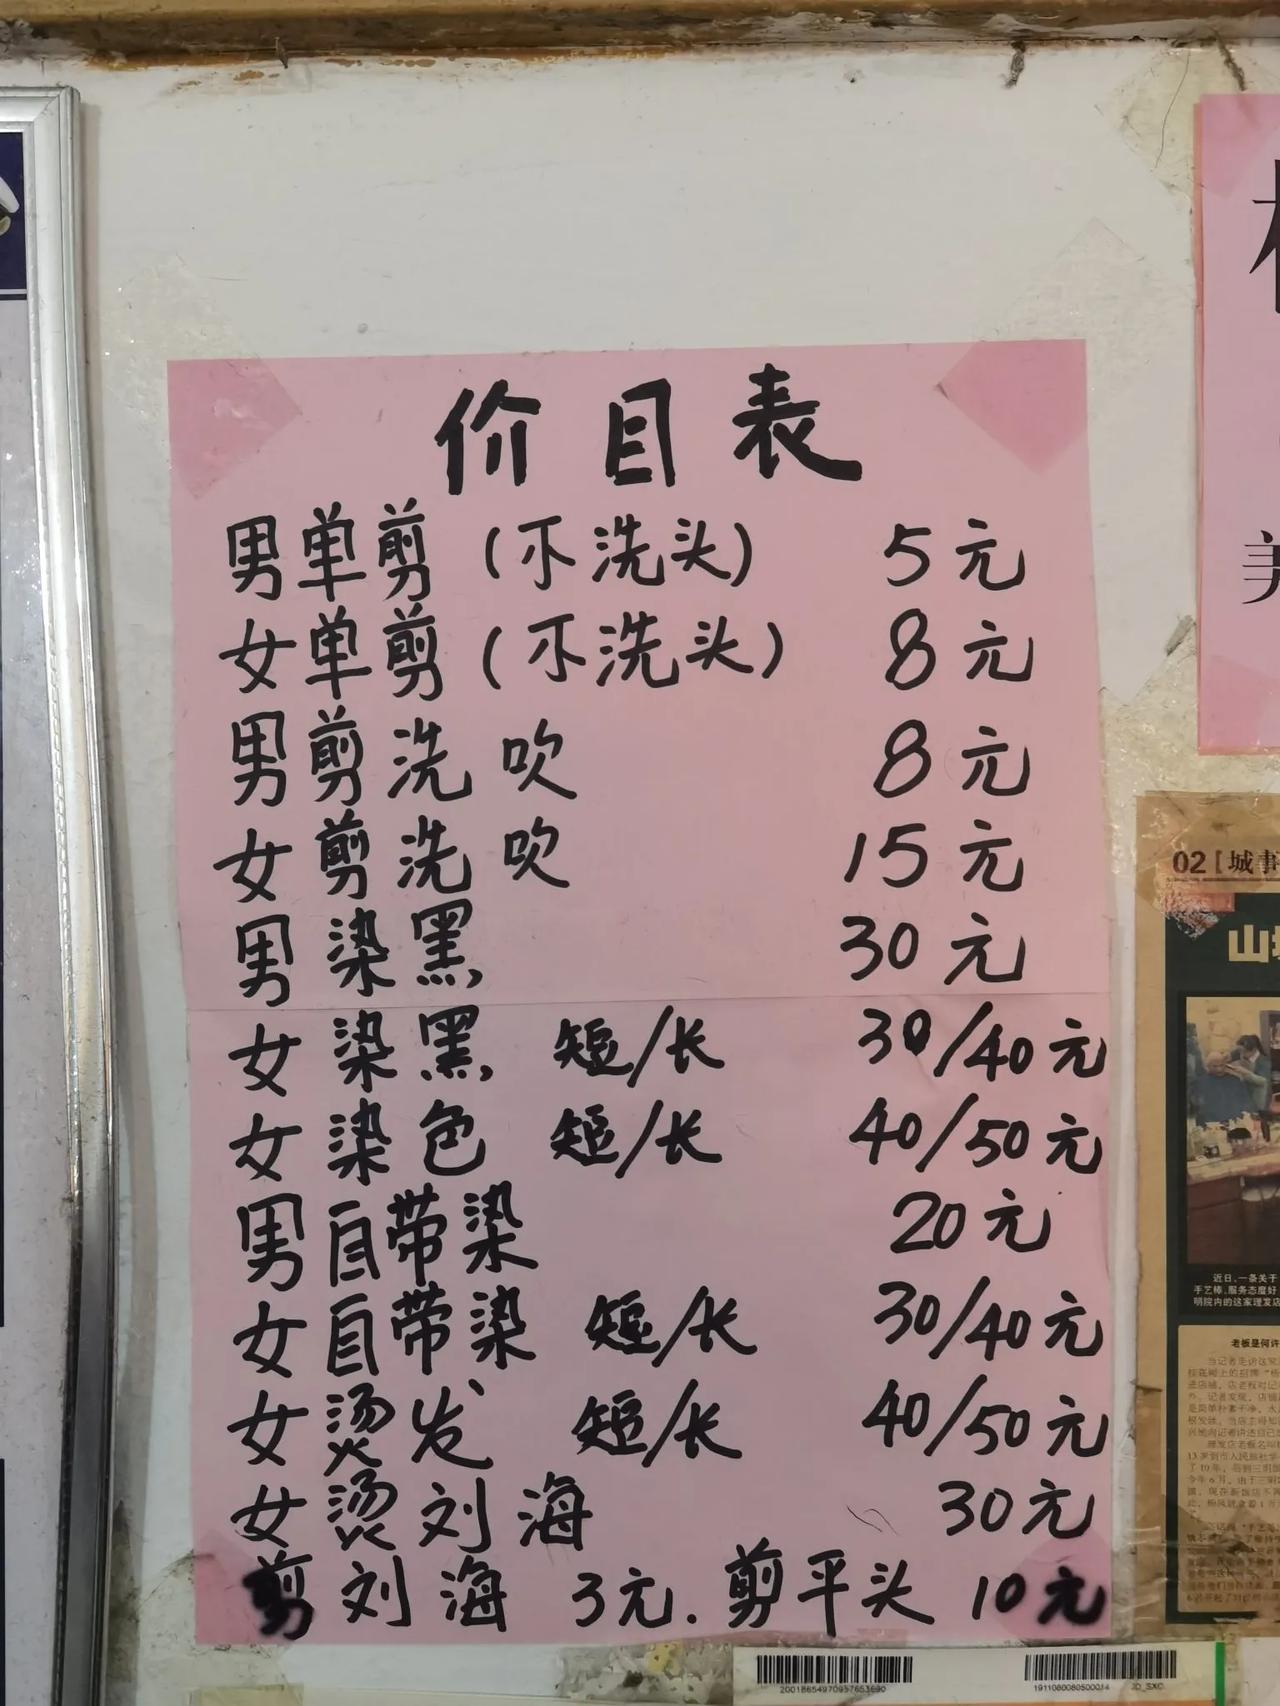 价目表
男单剪(不洗头) 5元
女单剪(不洗头) 8元
男剪洗吹 8元
女剪洗吹 15元
男染黑 30元
女染黑 短/长 30/40元
女染色 短/长 40/50元
男自带染 20元
女自带染 短/长 30/40元
女烫发 短/长 40/50元
女烫刘海 30元
剪刘海 3元. 剪平头 10元
美
02 [城事
山
近日,一条关于
手艺棒、服务态度好
明院内的这家理发店
老板是何许
20018654970957653690
1911080080500014 JD_SXC